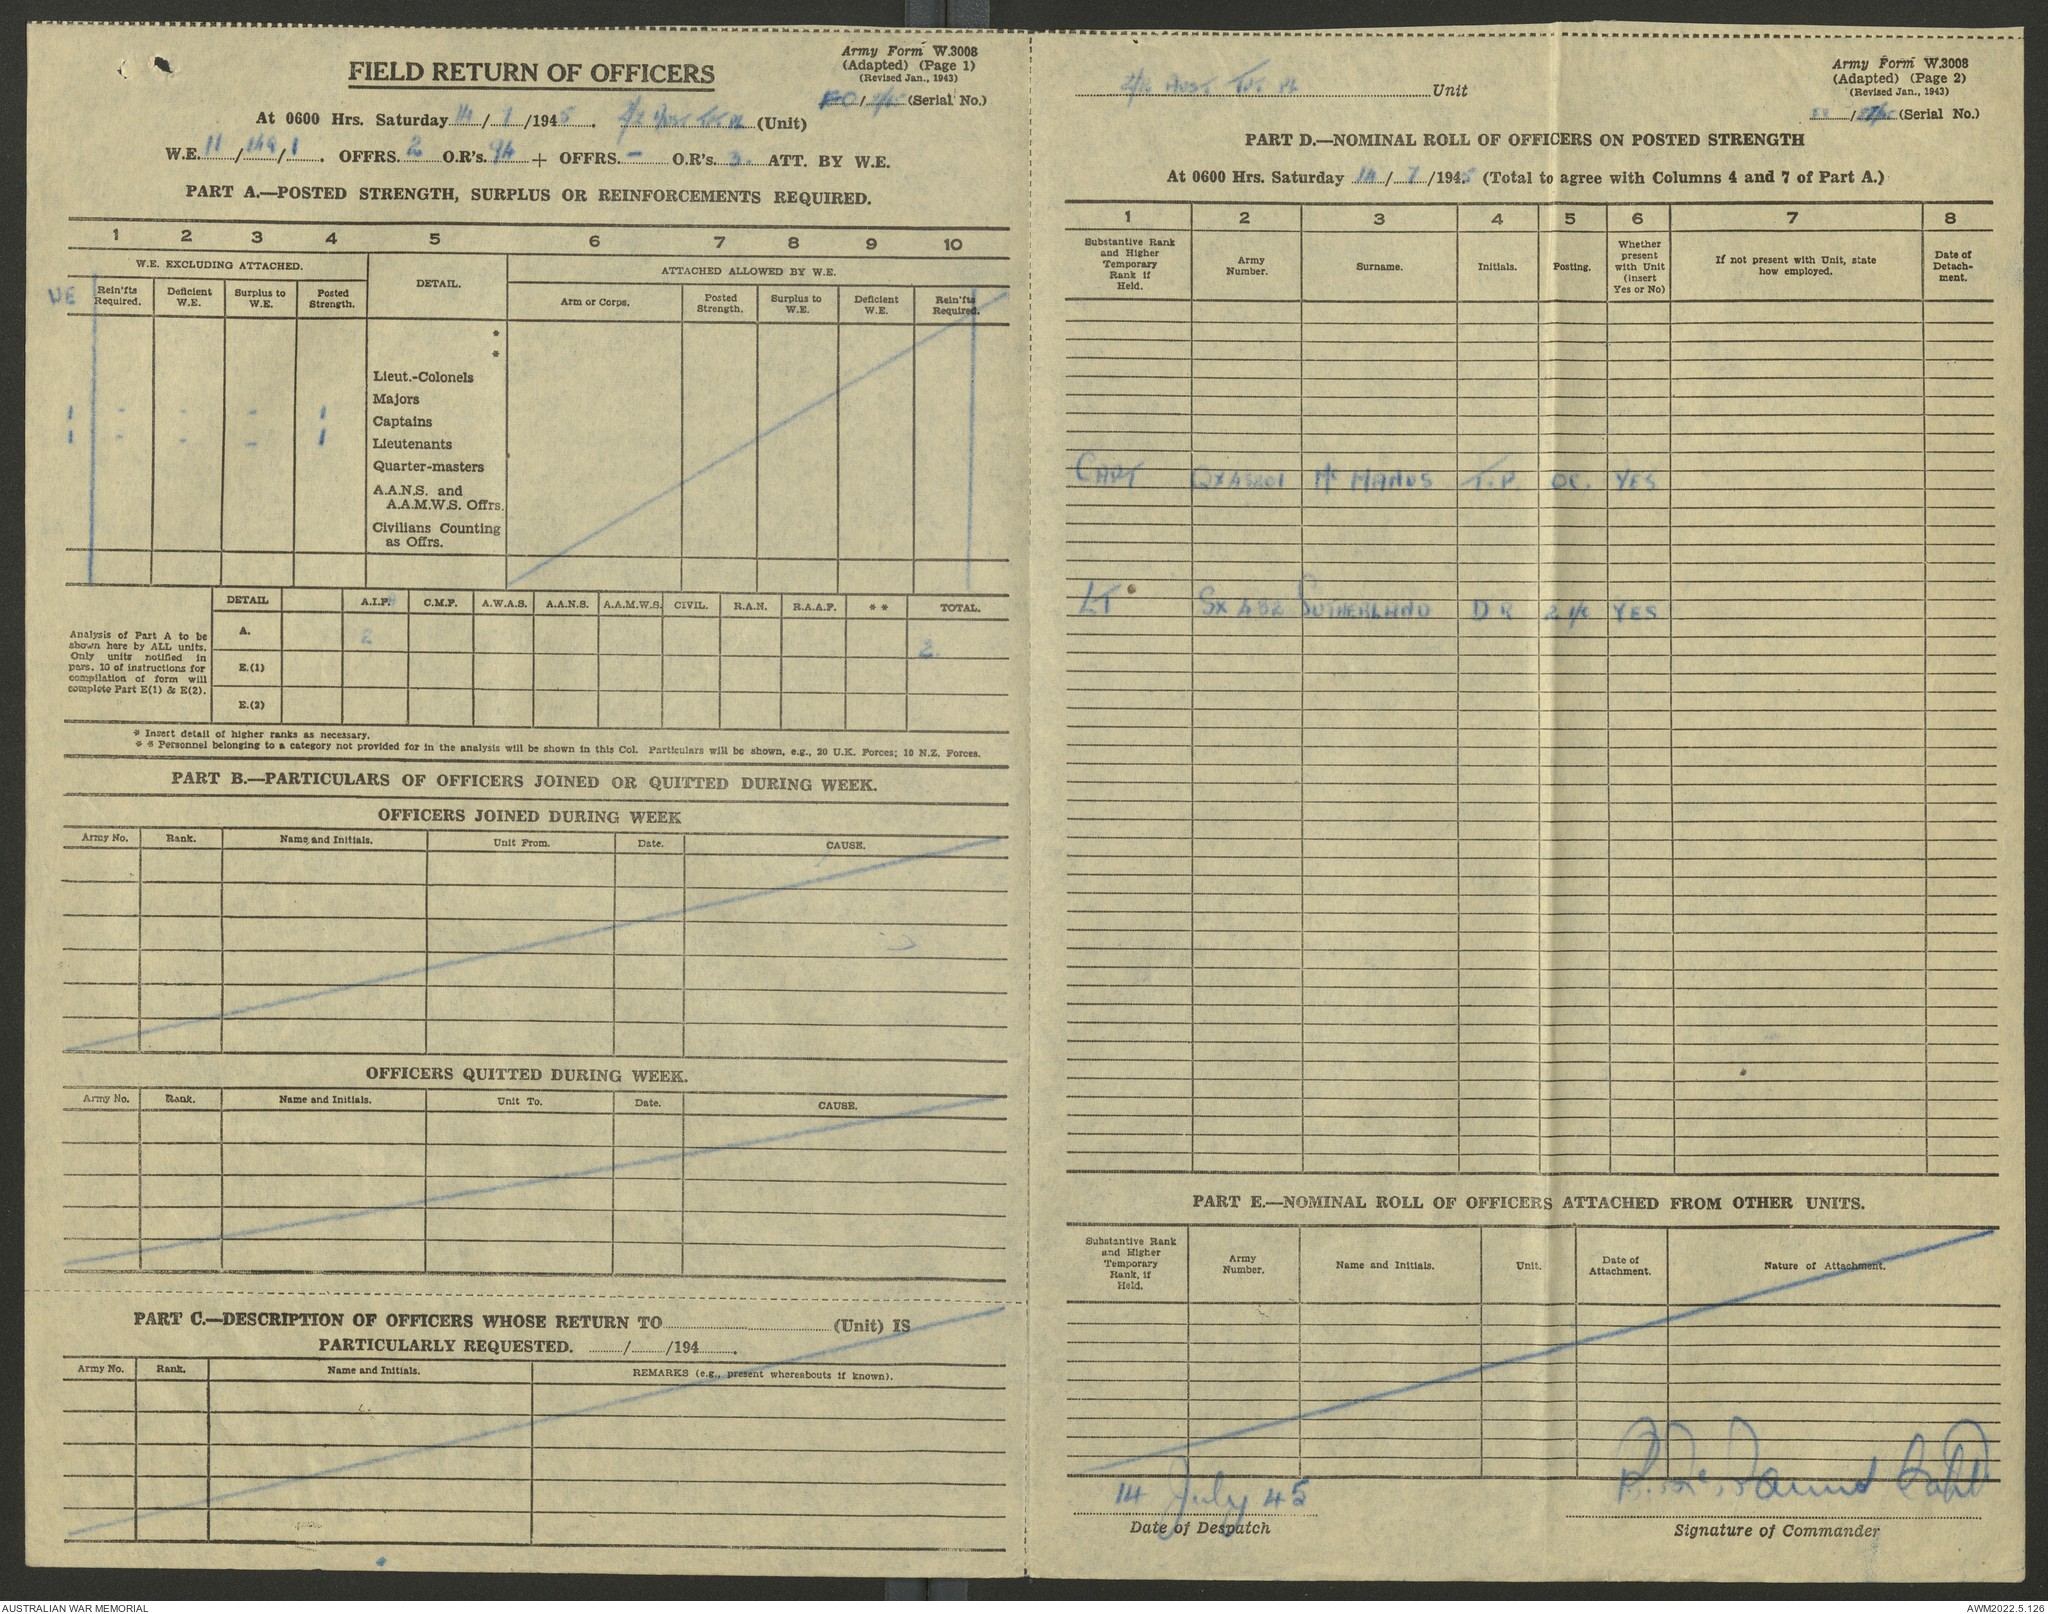 Army Form W.3008
(Adapted) (Page 1)
(Revised Jan., 1943)
FIELD RETURN OF OFFICERS
(Serial No.)
At 0600 Hrs. Saturday 14/7/1945. (Unit)
W.E. 11/149/1. OFFRS. 2 O.R's. 94 + OFFRS. - O.R's 3. ATT. BY W.E.
PART A.—POSTED STRENGTH, SURPLUS OR REINFORCEMENTS REQUIRED.
1 2 3 4 5 6 7 8 9 10
W.E. EXCLUDING ATTACHED. DETAIL. ATTACHED ALLOWED BY W.E.
WE Rein'fts Required. Deficient W.E. Surplus to W.E. Posted Strength. Arm or Corps. Posted Strength. Surplus to W.E. Deficient W.E. Rein'fts Required.
*
*
Lieut.-Colonels
Majors
1 - - - 1 Captains
1 - - - 1 Lieutenants
Quarter-masters
A.A.N.S. and
A.A.M.W.S. Offrs.
Civilians Counting
as Offrs.
DETAIL A.I.F. C.M.F. A.W.A.S. A.A.N.S. A.A.M.W.S. CIVIL. R.A.N. R.A.A.F. * * TOTAL.
Analysis of Part A to be
shown here by ALL units.
Only units notified in
para. 10 of instructions for
compilation of form will
complete Part E(1) & E(2).
A. 2 2.
E.(1)
E.(2)
* Insert detail of higher ranks as necessary.
* * Personnel belonging to a category not provided for in the analysis will be shown in this Col. Particulars will be shown, e.g., 20 U.K. Forces; 10 N.Z. Forces.
PART B.—PARTICULARS OF OFFICERS JOINED OR QUITTED DURING WEEK.
OFFICERS JOINED DURING WEEK
Army No. Rank. Name and Initials. Unit From. Date. CAUSE.
OFFICERS QUITTED DURING WEEK.
Army No. Rank. Name and Initials. Unit To. Date. CAUSE.
PART C.—DESCRIPTION OF OFFICERS WHOSE RETURN TO (Unit) IS
PARTICULARLY REQUESTED. / /194 .
Army No. Rank. Name and Initials. REMARKS (e.g., present whereabouts if known).
Army Form W.3008
(Adapted) (Page 2)
(Revised Jan., 1943)
Unit
(Serial No.)
PART D.—NOMINAL ROLL OF OFFICERS ON POSTED STRENGTH
At 0600 Hrs. Saturday 14/7/1945 (Total to agree with Columns 4 and 7 of Part A.)
1 2 3 4 5 6 7 8
Substantive Rank and Higher Temporary Rank if Held. Army Number. Surname. Initials. Posting. Whether present with Unit (insert Yes or No) If not present with Unit, state how employed. Date of Detachment.
CAPT QX45201 Mc MANUS T.P. OC. YES
LT SX 482 SUTHERLAND D R 2 I/C YES
PART E.—NOMINAL ROLL OF OFFICERS ATTACHED FROM OTHER UNITS.
Substantive Rank and Higher Temporary Rank, if Held. Army Number. Name and Initials. Unit. Date of Attachment. Nature of Attachment.
14 July 45
Date of Despatch
Signature of Commander
AUSTRALIAN WAR MEMORIAL
AWM2022.5.126